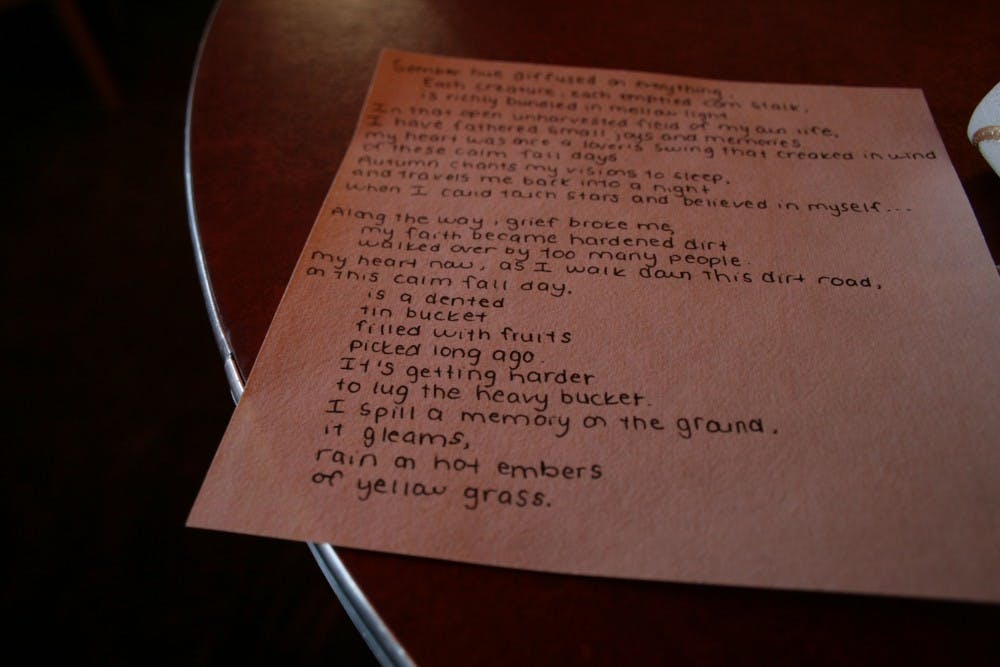 Somber hue diffused on everything.
Each creature, each emptied corn stalk,
is richly bundled in mellow light.
In that open unharvested field of my own life,
I have fathered small joys and memories.
my heart was once a lover's swing that creaked in wind
of these calm fall days
Autumn chants my visions to sleep,
and travels me back into a night
when I could touch stars and believed in myself...
Along the way, grief broke me,
my faith became hardened dirt
walked over by too many people.
my heart now, as I walk down this dirt road,
on this calm fall day,
is a dented
tin bucket
filled with fruits
picked long ago.
It's getting harder
to lug the heavy bucket.
I spill a memory on the ground.
it gleams,
rain on hot embers
of yellow grass.